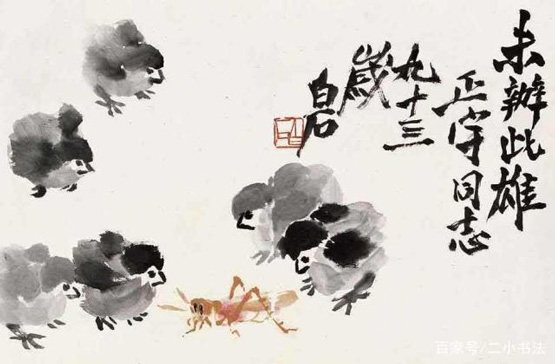 未辨此雄
正宇同志
九十三
歲
白石
百家号/二小书法